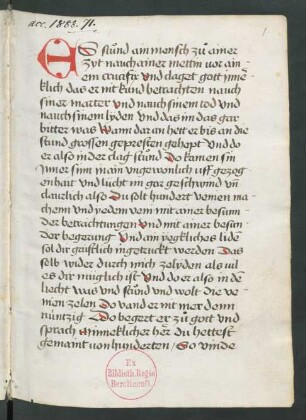 acc. 1883. 71.
1
ES stuͦnd ain mensch zuͦ ainer
zyt nauch ainer mettin vor ain
em crucifix vnd claget gott inne
klich das er nit kund betrachten nauch
siner marter vnd nauch sinem tod vnd
nauch sinem lyden vnd das im das gar
bitter was Wann dar an hett er bis an die
stund grossen gepresten gehept Vnd do
er also in der clag stuͦnd Do kamen sin
inner sinn in ain vngewonlich vff gezog
enhait vnd lucht im gar geschwind vn̄
claurlich also Du solt hundert venien ma
chenn vnd yeden veni mit ainer besunn
der betrachtungen Vnd mit ainer besun
der begerung Vnd ain yegkliches lide
sol dir gaistlich ingetruckt werden Das
selb wider durch mich zelyden als uil
es dir muglich ist Vnd do er also in de
liecht was vnd stuͦnd vnd wolt die ve
nien zelen Do vand er nit mer denn
nüntzig Do begert er zuͦ gott vnd
sprach Minneklicher her du hettest
gemaint von hunderten So vinde
Ex
Biblioth. Regia
Berolinenſi.